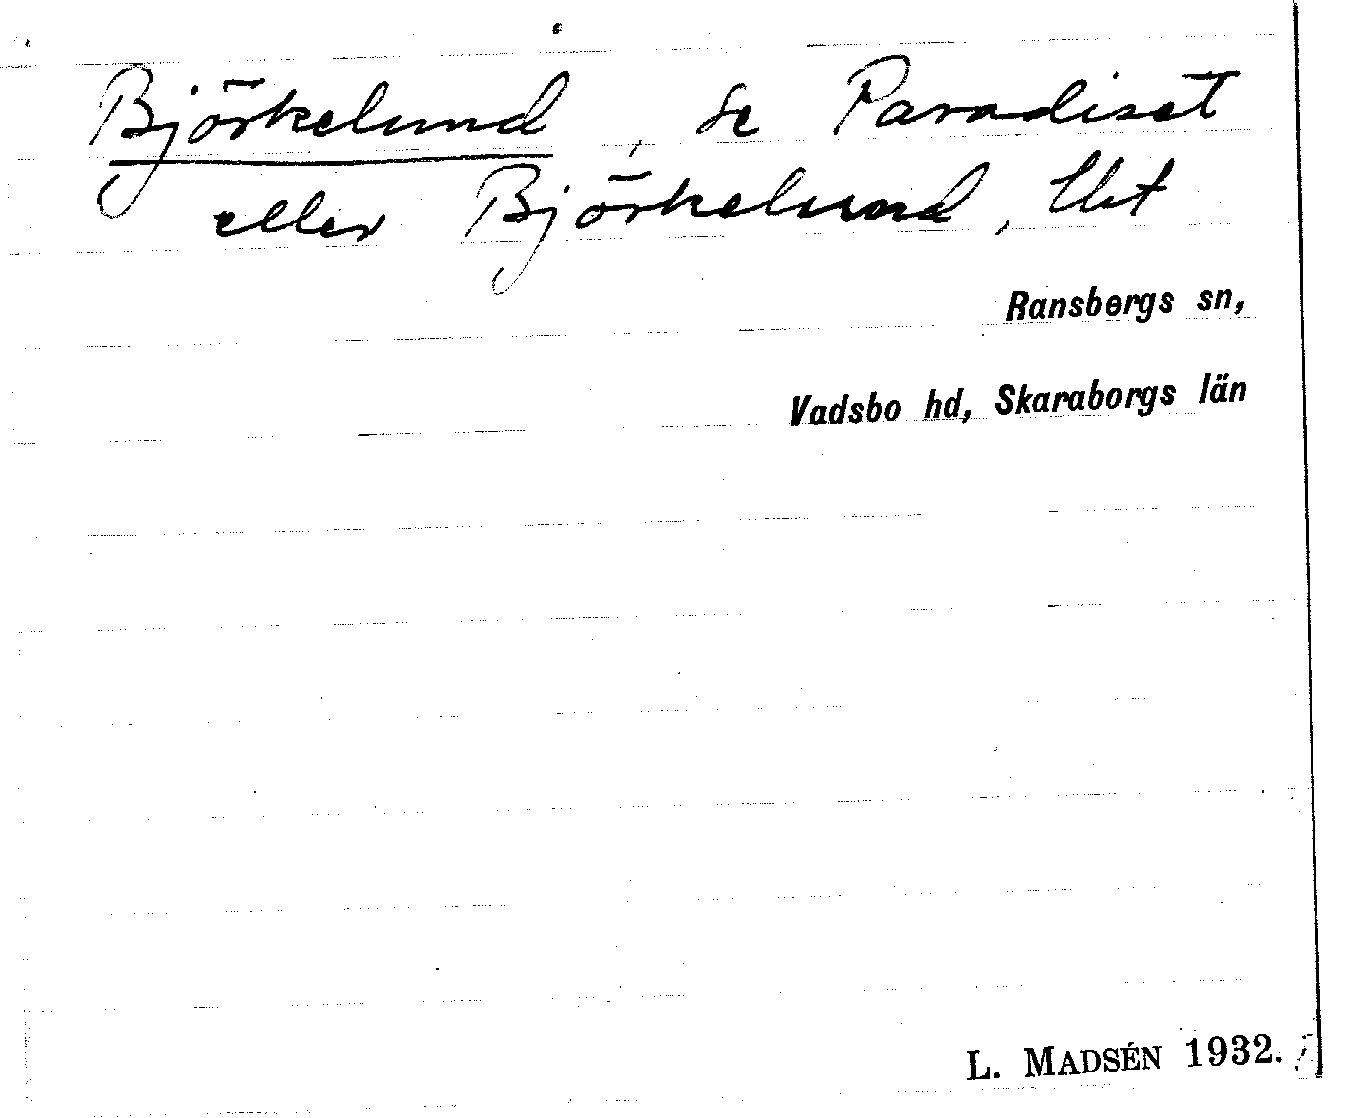 Björkelund, se Paradiset
eller Björkelund, lht
Ransbergs sn,
Vadsbo hd, Skaraborgs län
L. MADSÉN 1932.